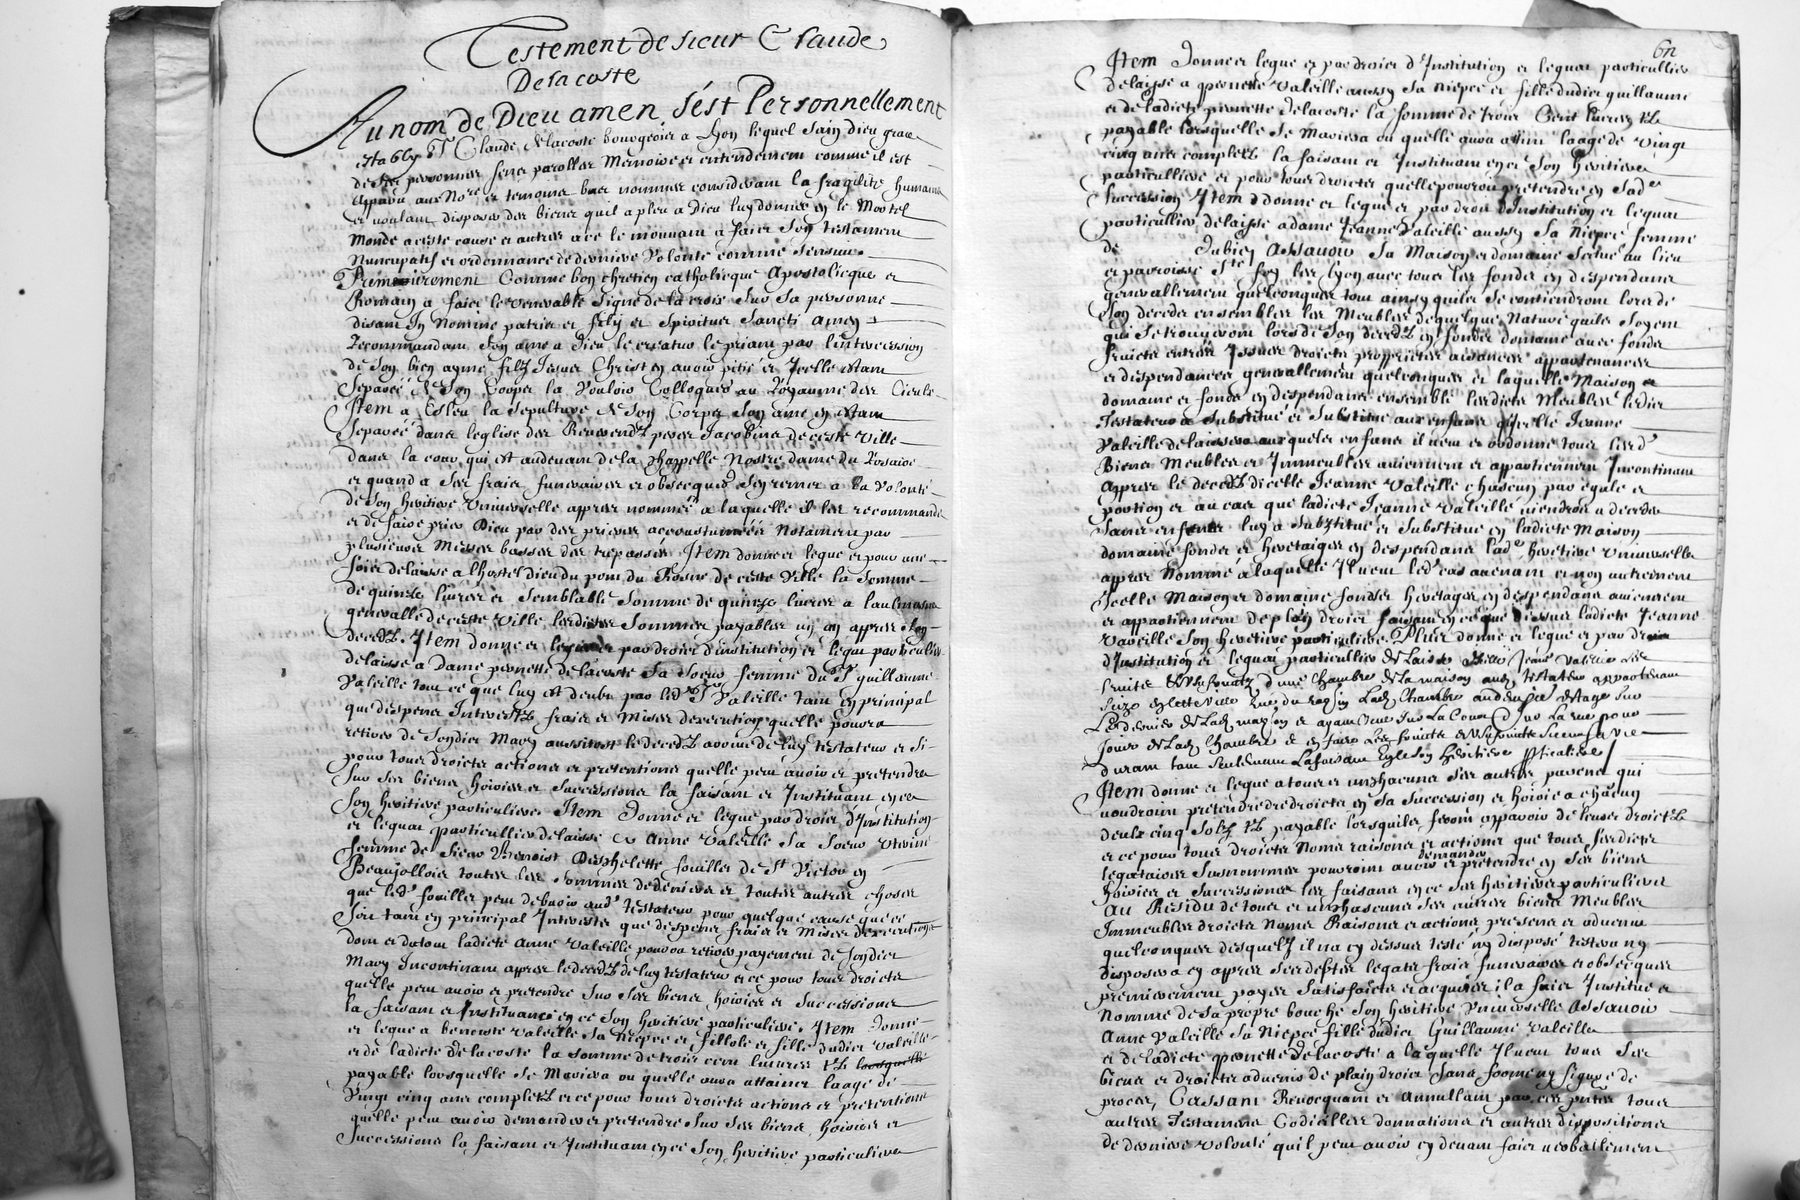 Testement de sieur Claude
Delacoste
Au nom de Dieu amen, s'ést Personnellement
establÿ Sr Claude delacoste bourgeois a Lyon lequel sain dieu grace
de ses personnes sens parolles Memoire et entendement comme il est
apparu aux Nore et temoins bas nommes considerant la fragilité humaine
et voulant disposer des biens quil a pleu a Dieu luy donner en le Mortel
Monde a ceste cause et autres a ce le mouvant a faict son testament
Nuncupatif et ordonnance de derniere Volonte comme sensuit
Primierement Comme bon chretien catholicque Apostolicque et
Romain a faict le venerable signe de la croix sur sa personne
disant In Nomine patris et filij et spiritus sancti amen
Recommandant son ame a Dieu le createur le priant par l'intercession
de son bien aymé filz Jesus Christ en avoir pitié et Icelle estant
separeé de son Corps la vouloir Colloquer au Royaume des Cieulx
Item a Esleu la sepulture de son Corps son ame en estant
separeé dans leglise des Reverendz peres Jacobins de ceste ville
dans la cour qui est audevant de la chappelle Nostre dame du Rosaire
et quand a ses frais funeraires et obsecques sen remet a la volonté
de son heritiere Universelle appres nommeé a laquelle il les recommande
et de faire prier Dieu par des prieres accoustumeés Notament par
plusieurs Messes basses des trepassés Item donne et legue et pour une
fois delaisse a lhostel dieu du pont du Rosne de ceste ville la somme
de quinze livres et semblable somme de quinze livres a laulmosne
generalle de ceste ville lesdictes sommes payables un an appres son
decedz. Item donne et legue par droict d'institution et legat particulier
delaisse a dame pernette delacoste sa soeur femme du Sr guillaume
Valeille tout ce que luy est deubt par led Sr Valeille tant en principal
que despens Interestz frais et mises dexecution quelle pourra
retirer de sondict Mary aussitost le decedz advenu de luy testateur et ce
pour tous droicts actions et pretentions quelle peut avoir et pretendre
sur ses biens hoiries et successions la faisant et Instituant en ce
son heritiere particuliere. Item donne et legue par droict d'Institution
et legat particullier delaisse a Anne Valeille sa soeur uterine
femme de sieur Benoist Dechelette fouiller de St Victor en
Beaujollois toutes les sommes de deniers et toutes autres choses
que led fouiller peut debvoir aud testateur pour quelque cause que ce
soit tant en principal Interests que despens frais et mises dexecution
dont et du tout ladicte Anne Valeille pourra retirer payement de sondict
Mary Incontinant appres le decedz de luy testateur et ce pour tous droicts
quelle peut avoir et pretendre sur ses biens hoiries et successions
la faisant et Instituant en ce son heritiere particuliere. Item donne
et legue a benoiste Valeille sa Niepce et fillole et fille dudict Valeille
et de ladicte delacoste la somme de trois cent livres tz lorsquelle
payable lorsquelle se Mariera ou quelle aura attainct laage de
Vingt cinq ans completz et ce pour tous droicts actions et pretentions
quelle peut avoir demander et pretendre sur ses biens hoiries et
successions la faisant et Instituant en ce son heritiere particuliere
Item Donne et legue et par droict d'Institution et legat particullier
delaisse a pernette Valeille aussy sa niepce et fille dudict guillaume
et de ladicte pernette delacoste la somme de trois Cens livres tz
payable lorsquelle se Mariera ou quelle aura attint laage de Vingt
cinq ans completz la faisant et Instituant en ce son heritiere
particulliere et pour tous droicts quelle pourroit pretendre en sade
succession Item donne et legue et par droit d'Institution et legat
particullier delaisse a dame Jeanne Valeille aussy sa Niepce femme
de dubien Assavoir sa Maison et domaine sictué au lieu
et parroisse Ste foy les lyon avec tous les fonds en dependant
generallement quelconques tout ainsy quils se contiendront lors de
son decedz ensembles les Meubles de quelque Nature quils soyent
qui se trouveront lors de son decedz en sondit domaine avec fonds
fruicts entrées Issues droicts proprietes aisances appartenances
et dependances generallement quelconques et laquelle Maison et
domaine et fonds en dependant ensemble lesdicts Meubles ledict
Testateur a Substitué et Substitue aux enfans qu'icelle Jeanne
Valeille delaissera auxquels enfans il veut et ordonne tous lesd
Biens Meubles et Immeubles aviennent et appartiennent Incontinant
Appres le decedz dicelle Jeanne Valeille chascun par egale
portion et au cas que ladicte Jeanne Valeille viendroit a deceder
sans enfans luy a substitué et substitue en ladicte Maison
domaine fonds et heretaiges en despendans lade heritiere Universelle
appres Nommé a laquelle Il veut led cas avenant et non autrement
Icelle Maison et domaine fonds et heretages en dependans aviennent
et appartiennent de plain droict faisant en ce que dessus ladicte Jeanne
Valeille son heritiere particuliere. Plus donne et legue et par droict
d'Institution et legat particullier delaisse a ladite Jeane Valeille les
fruits et usufruitz d'une chambre de la maison aud testateur appartenant
size en cette ville rue du rasin Lad Chambre au deuxie estage sur
Le derriere de Lad maison et ayant veue sur La Cour pour
Jouir de Lad Chambre et en faire Les fruits siens sa vie
durant tant seulement La faisant en ce son heritiere particuliere
Item donne et legue a tous et unchacuns ses autres parens qui
voudroint pretendre droicts en sa succession et hoirie a chacun
deulx cinq solz tz payable lorsquils feront apparoir de leurs droictz
et ce pour tous droicts Noms raisons et actions que tous lesdicts
legataires susnommes pourroint avoir demander et pretendre en ses biens
hoiries et successions les faisans en ce ses heritiers particuliers
Au Residu de tous et unchascuns ses autres biens Meubles
Immeubles droicts Noms Raisons et actions presens et advenir
quelconques desquelz il na cy dessus testé ny disposé testera ny
disposera cy appres ses debtes legats frais funeraires et obsecques
premierement payes satisfaicts et acquites il a faict Institué et
Nommé de sa propre bouche son heritiere Universelle Assavoir
Anne Valeille sa Niepce fille dudict Guillaume Valeille
et de ladicte pernette delacoste a laquelle Il veut tous ses
biens et droicts advenir de plain droict sans forme ny figure de
proces, Cassant Revocquant et annullant par ces pntes tous
autres Testamens Codicilles donnations et autres dispositions
de derniere volonté quil peut avoir cy devant faict verballement